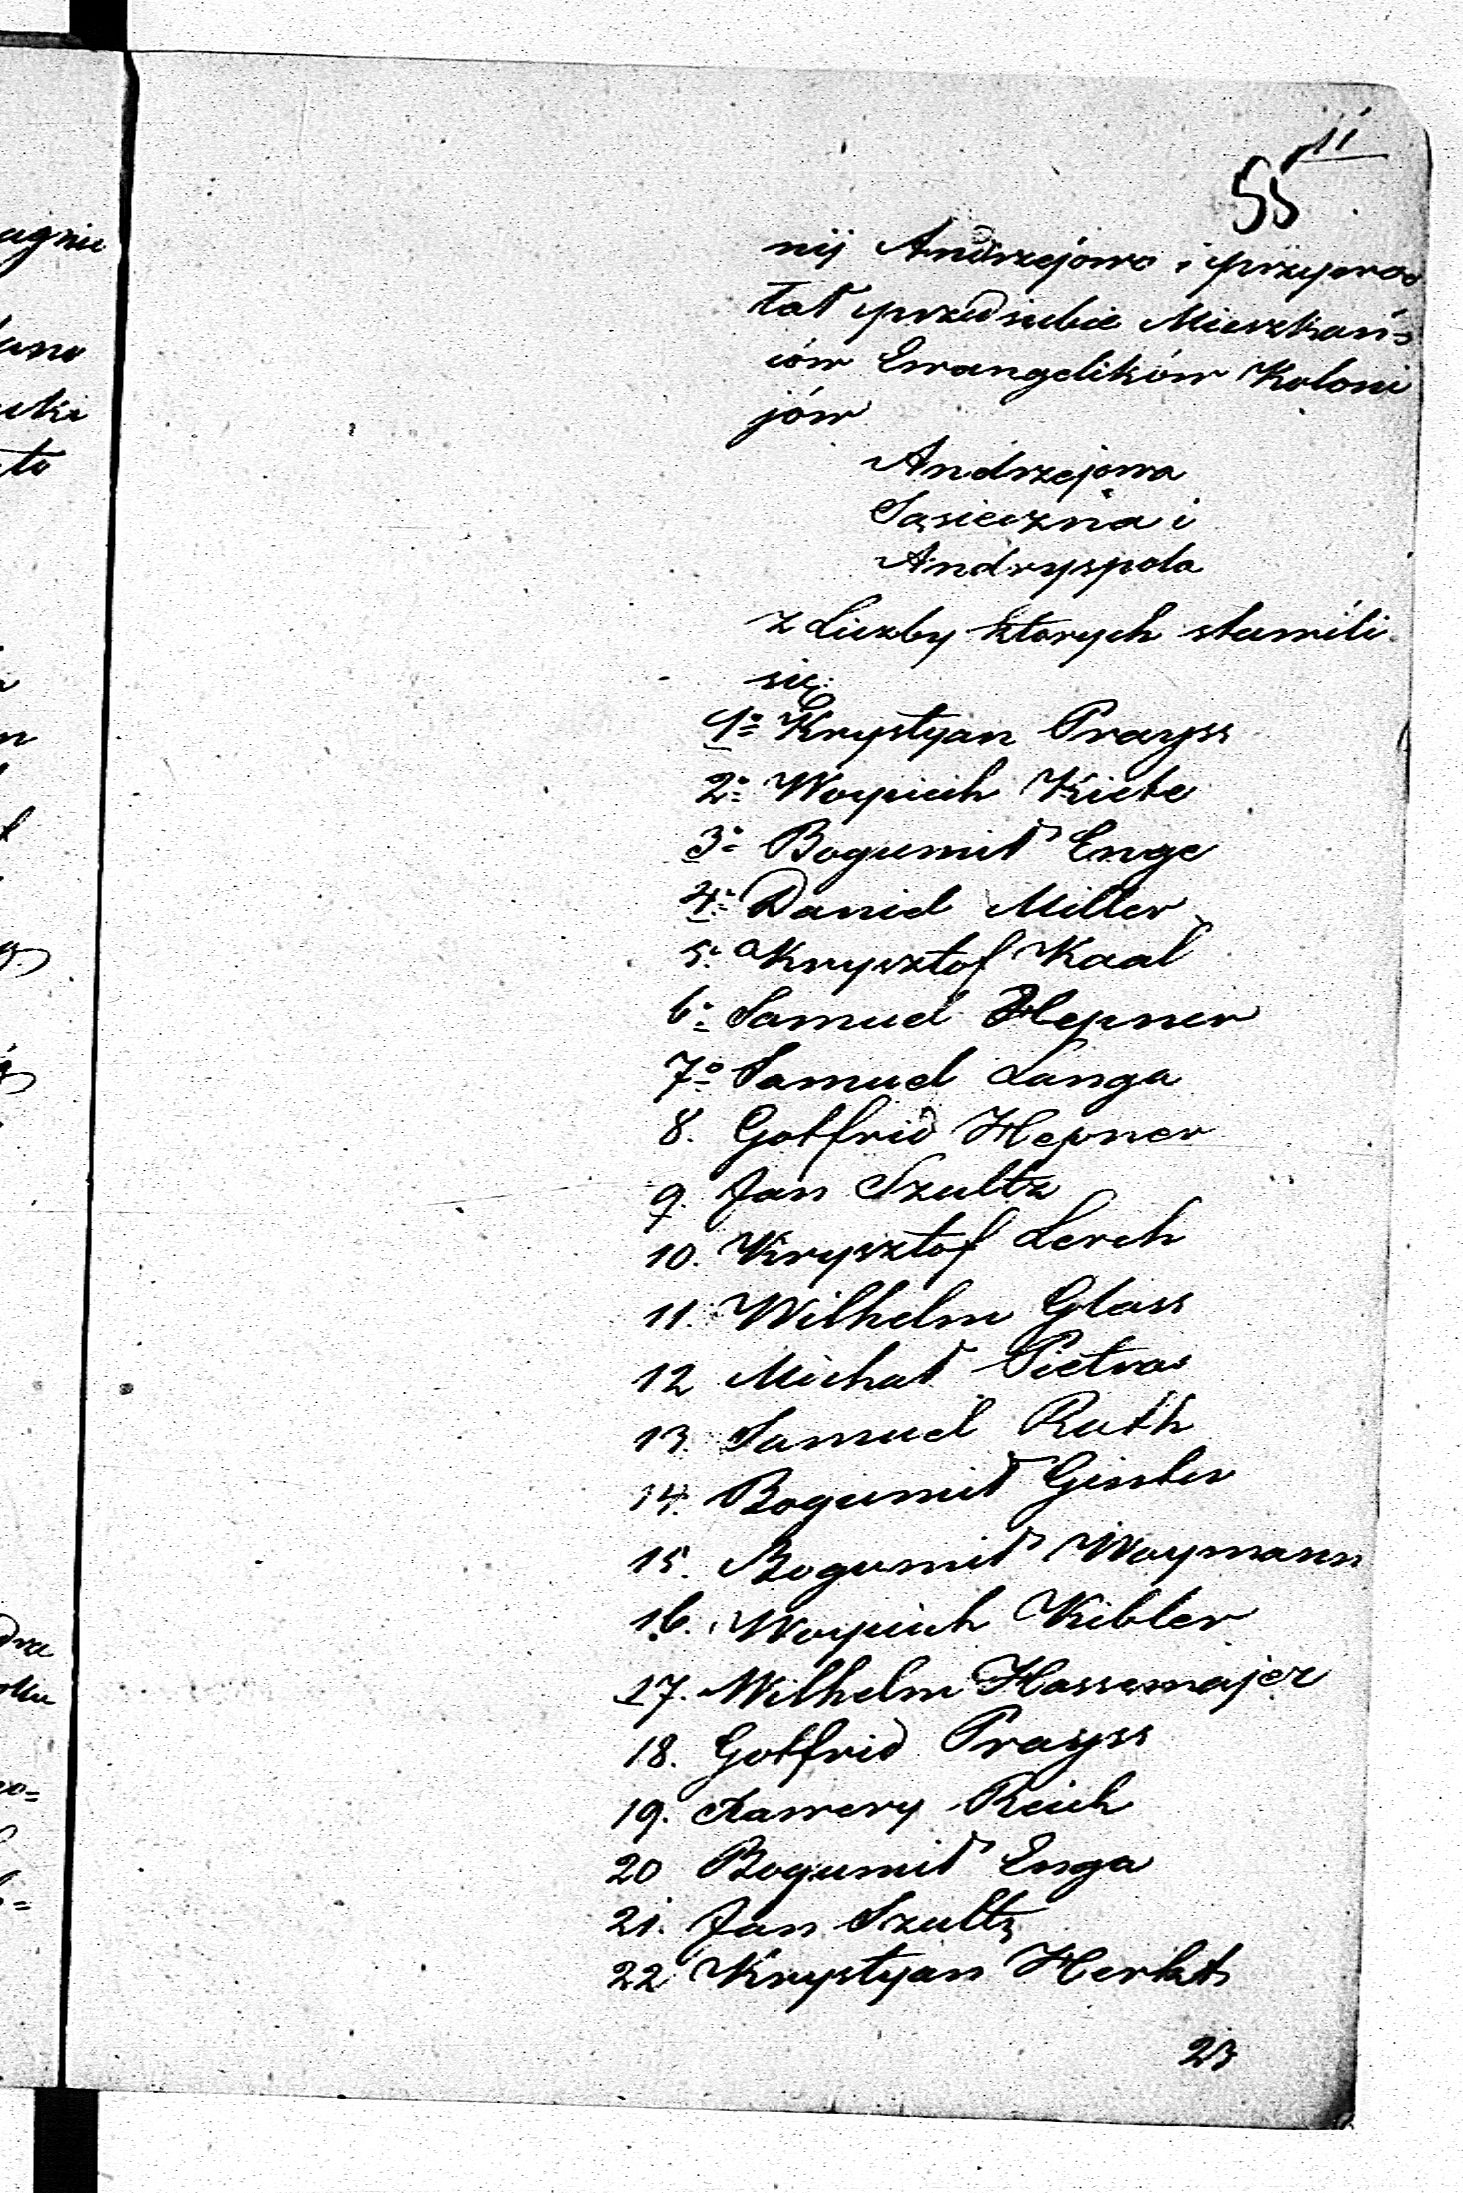 11
55
nij Andrzejowa i przywo=
łał przed siebie Mieszkań=
ców Ewangelików Koloni
jów
Andrzejowa
Sąsieczna i
Andryspola
z Liczby ktorych stawili
się:
1o Krystyan Prayss
2o Woyciech Kiebe
3o Bogumił Enge
4o Daniel Miller
5o Krysztof Kaal
6o Samuel Hepner
7o Samuel Langa
8. Gotfrid Hepner
9. Jan Szultz
10. Krysztof Lerch
11. Wilhelm Glass
12 Michał Pietras
13. Samuel Rath
14. Bogumił Ginter
15. Bogumił Woymann
16. Woyciech Kibler
17. Wilhelm Hassemajer
18. Gotfrid Prayss
19. Xawery Reich
20 Bogumił Enga
21. Jan Szultz
22 Krystyan Herkt
23